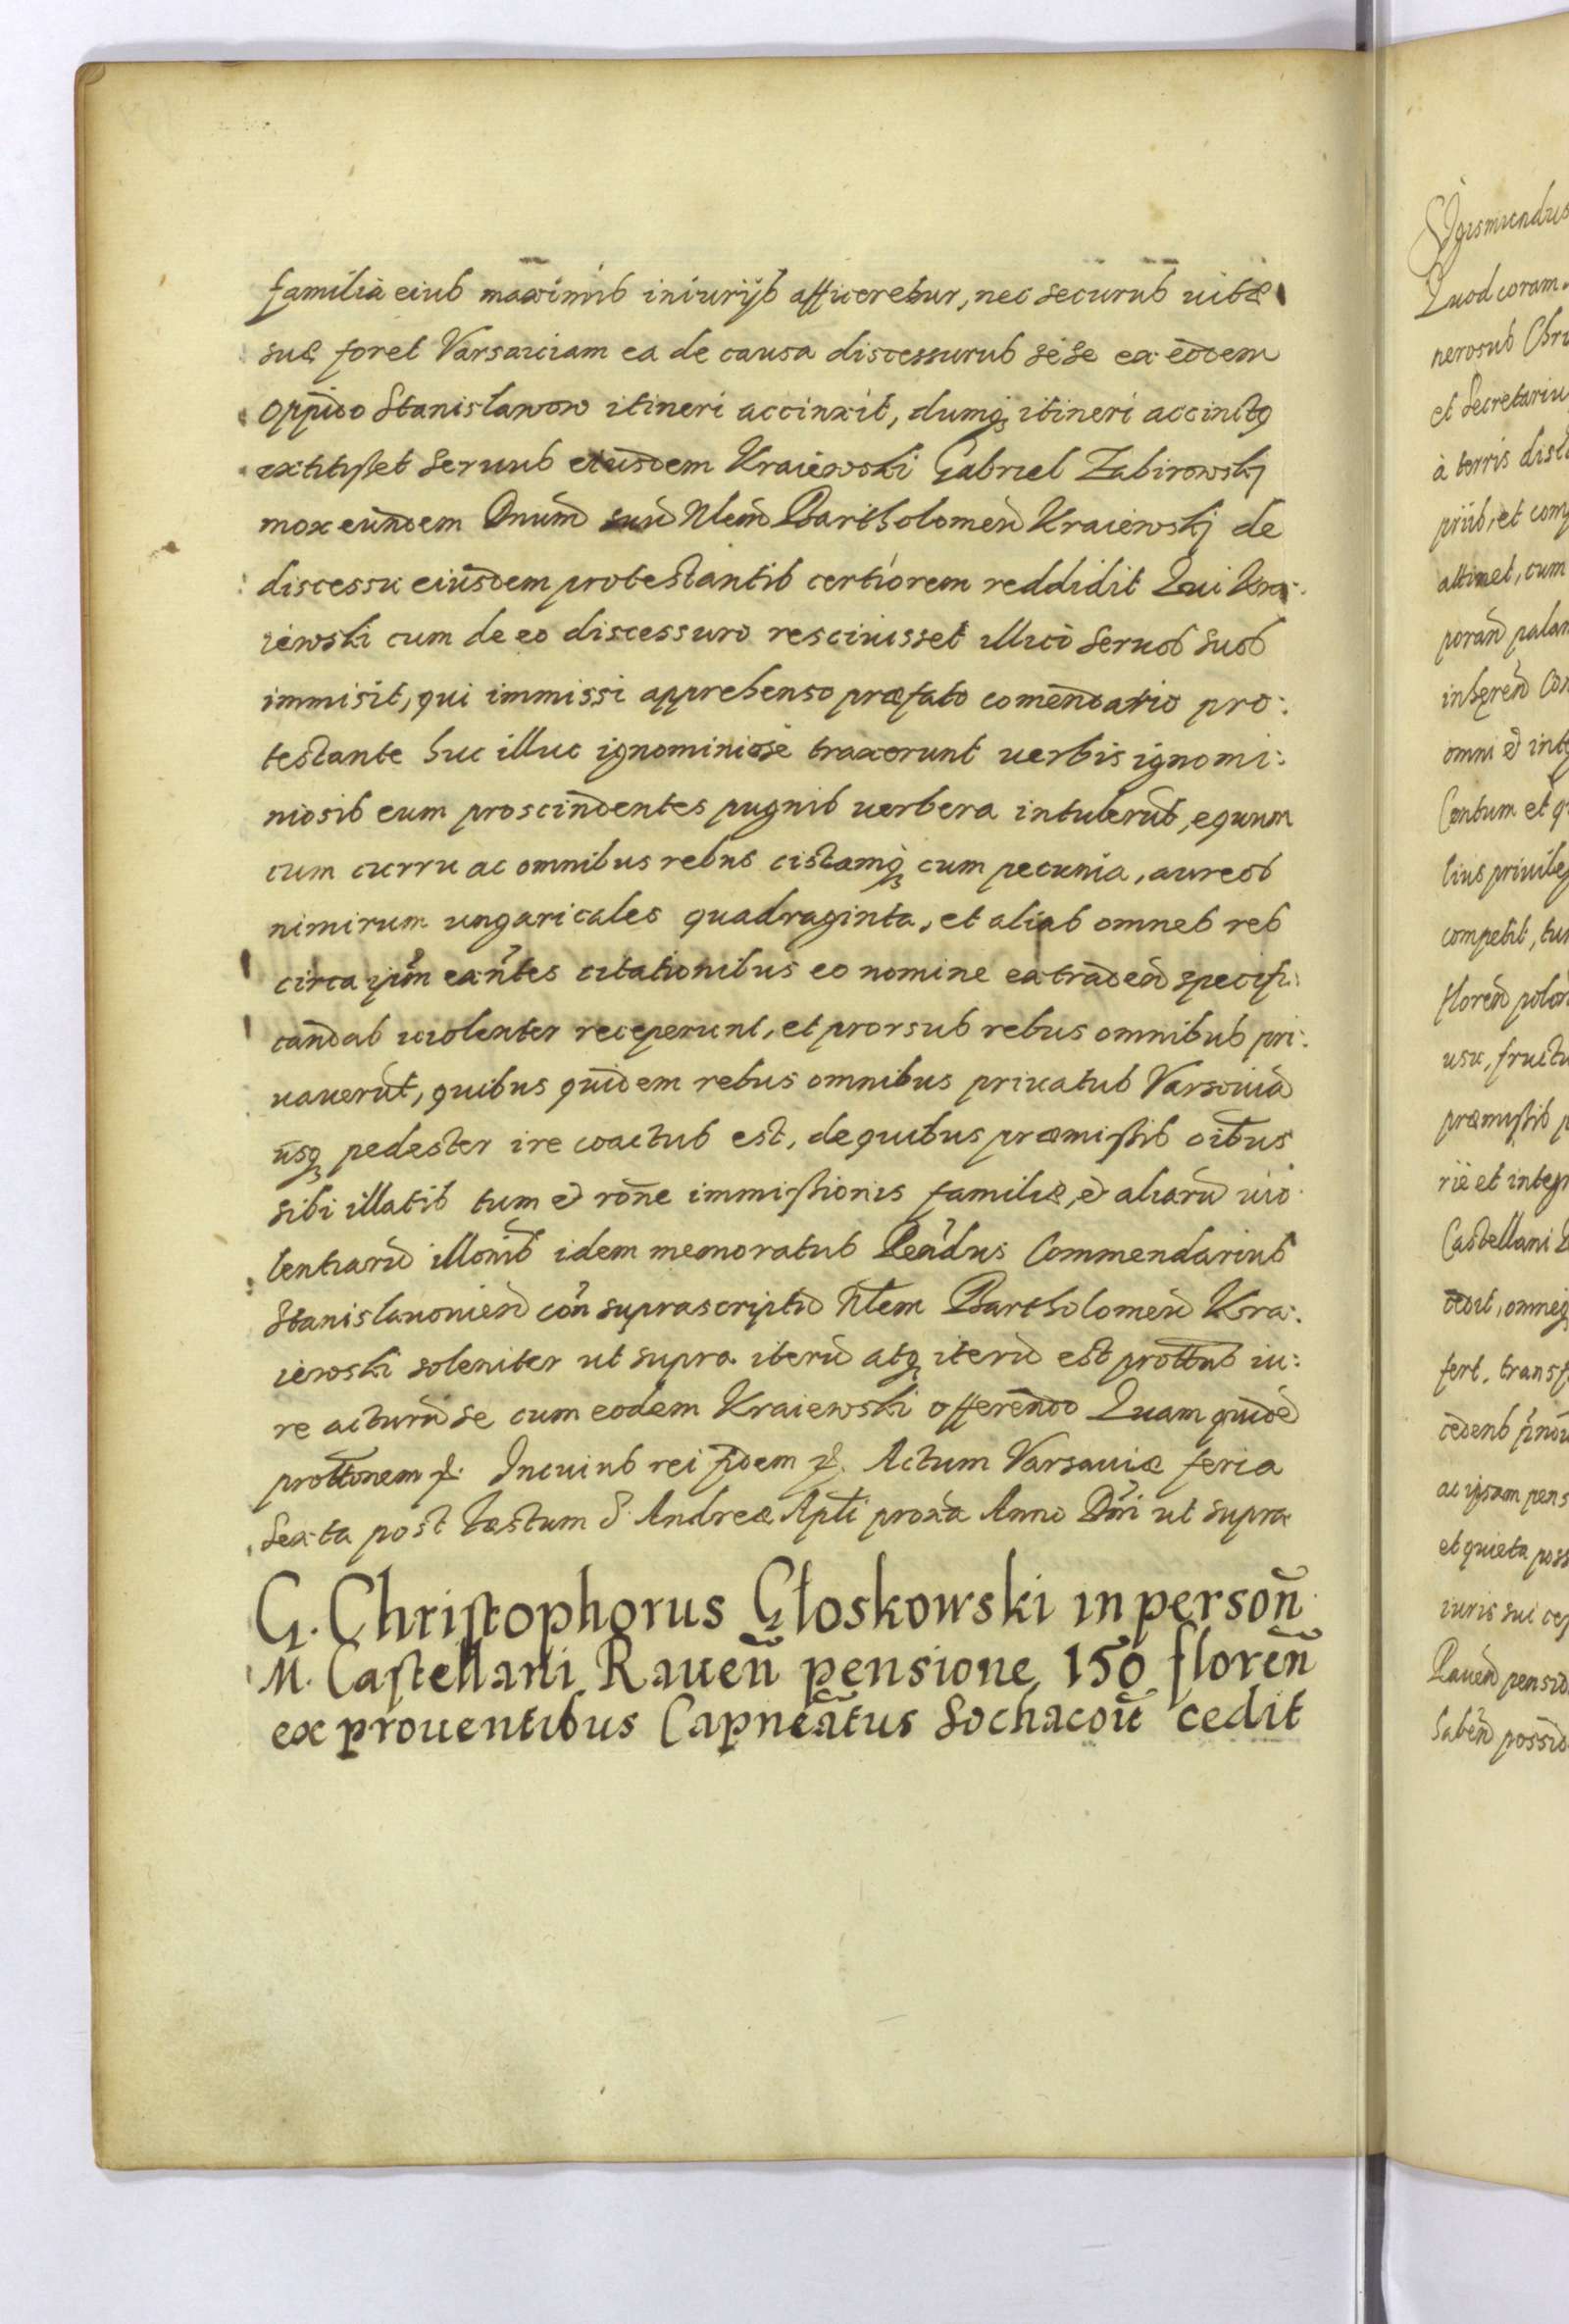 familia eius maximis iniurijs afficeretur, nec securus uitæ
suę foret Varsauiam ea de causa discessurus sese ex eodem
oppido Stanislawow itineri accinxit, dumq; itineri accinctq
extitisset seruus eiusdem Kraiewski Gabriel Zabirowskj
mox eundem Dnum suũ Nlem Bartholomeũ Kraiewskj de
discessu eiusdem protestantis certiorem reddidit Qui Kra:
iewski cum de eo discessuro resciuisset illico seruos suos
immisit, qui immissi apprehenso præfato comendario pro:
testante huc illuc ignominiose traxerunt uerbis ignomi:
niosis eum proscindentes pugnis uerbera intulerũt, equum
cum curru ac omnibus rebus cistamq; cum pecunia, aureos
nimirum ungaricales quadraginta, et alias omnes res
circa ipm exñtes citationibus eo nomine extradeñ specifi:
candas uiolenter receperunt, et prorsus rebus omnibus pri:
uauerũt, quibus quidem rebus omnibus priuatus Varsouiã
usq; pedester ire coactus est, de quibus præmissis oĩbus
sibi illatis tum et rõne immissionis familiæ, et aliarũ uio
lentiarũ illoniš idem memoratus Reñdus Commendarius
Stanislauonieñ coñ suprascriptũ Nlem Bartholomeũ Kra:
iewski soleniter ut supra iterũ atq; iterũ est prottus iu:
re acturũ se cum eodem Kraiewski offerendo Quam quidẽ
prottonem etc. In cuius rei fidem etc. Actum Varsauiæ feria
sexta post Festum S. Andreæ Apli proxa Anno Dñi ut supra
G. Christophorus Głoskowski in persoñ
M. Castellani Raueñ pensione 150 floreñ
ex prouentibus Capneatus Sochacoũ cedit
Sigismundus
Quod coram
nerosus Chri
et Secretariu
à terris dist
priis, et com
attinet, cum
porañ palam
inhęreñ Con
omni et inte
Centum et q
lius priuileg
competit, tu
floreñ polon
usu, fructu
præmissis p
rie et integr
Castellani R
cedit, omneq
fert, transf
cedens
ac ipsam pens
et quieta poss
iuris sui ces
Raueñ pensio
habeñ possid